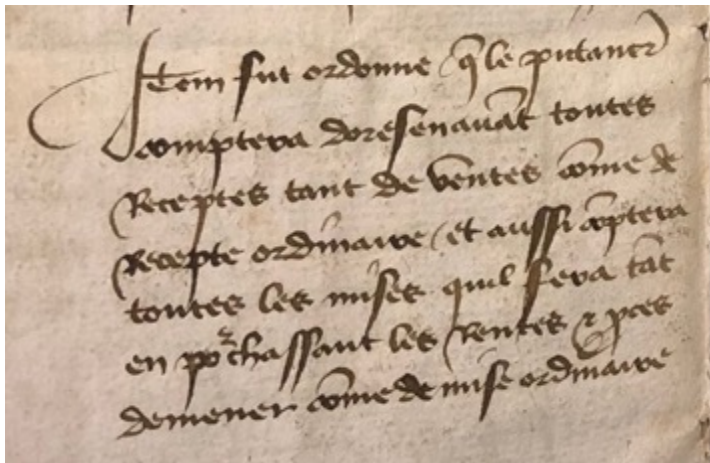 Item fut ordonne q̃ le pitancr̃
comptera doresenauãt toutes
Receptes tant de vẽntes cõme de
Recepte ordinaire / et aussi cõptera
toutes les mises quil fera tãt
en po᷑chassant les Rentes & ꝓces
demener cõme de mise ordinaire